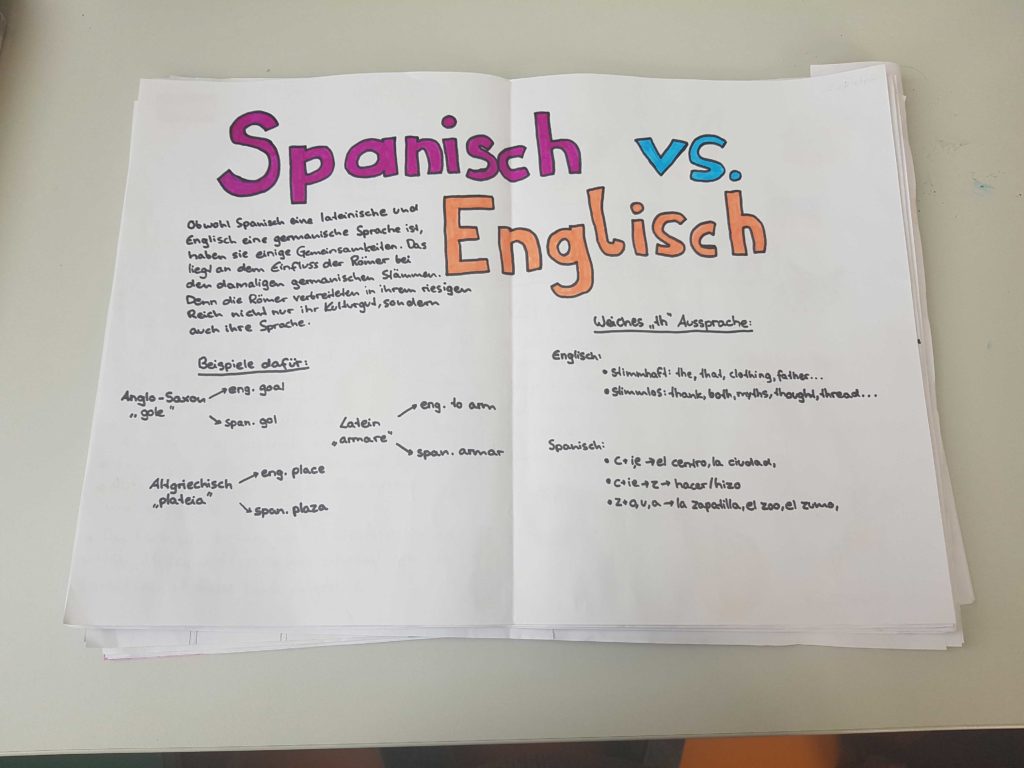 Spanisch vs.
Englisch
Obwohl Spanisch eine lateinische und
Englisch eine germanische Sprache ist,
haben sie einige Gemeinsamkeiten. Das
liegt an dem Einfluss der Römer bei
den damaligen germanischen Stämmen.
Denn die Römer verbreiteten in ihrem riesigen
Reich nicht nur ihr Kulturgut, sondern
auch ihre Sprache.
Beispiele dafür:
Anglo-Saxon → eng. goal
„gole“ → span. gol
Latein → eng. to arm
„armare“ → span. armar
Altgriechisch → eng. place
„plateia“ → span. plaza
Weiches „th“ Aussprache:
Englisch:
• stimmhaft: the, that, clothing, father...
• stimmlos: thank, both, myths, thought, thread...
Spanisch:
• c+ie → el centro, la ciudad,
• c+ie → z → hacer/hizo
• z+o,u,a → la zapatilla, el zoo, el zumo,